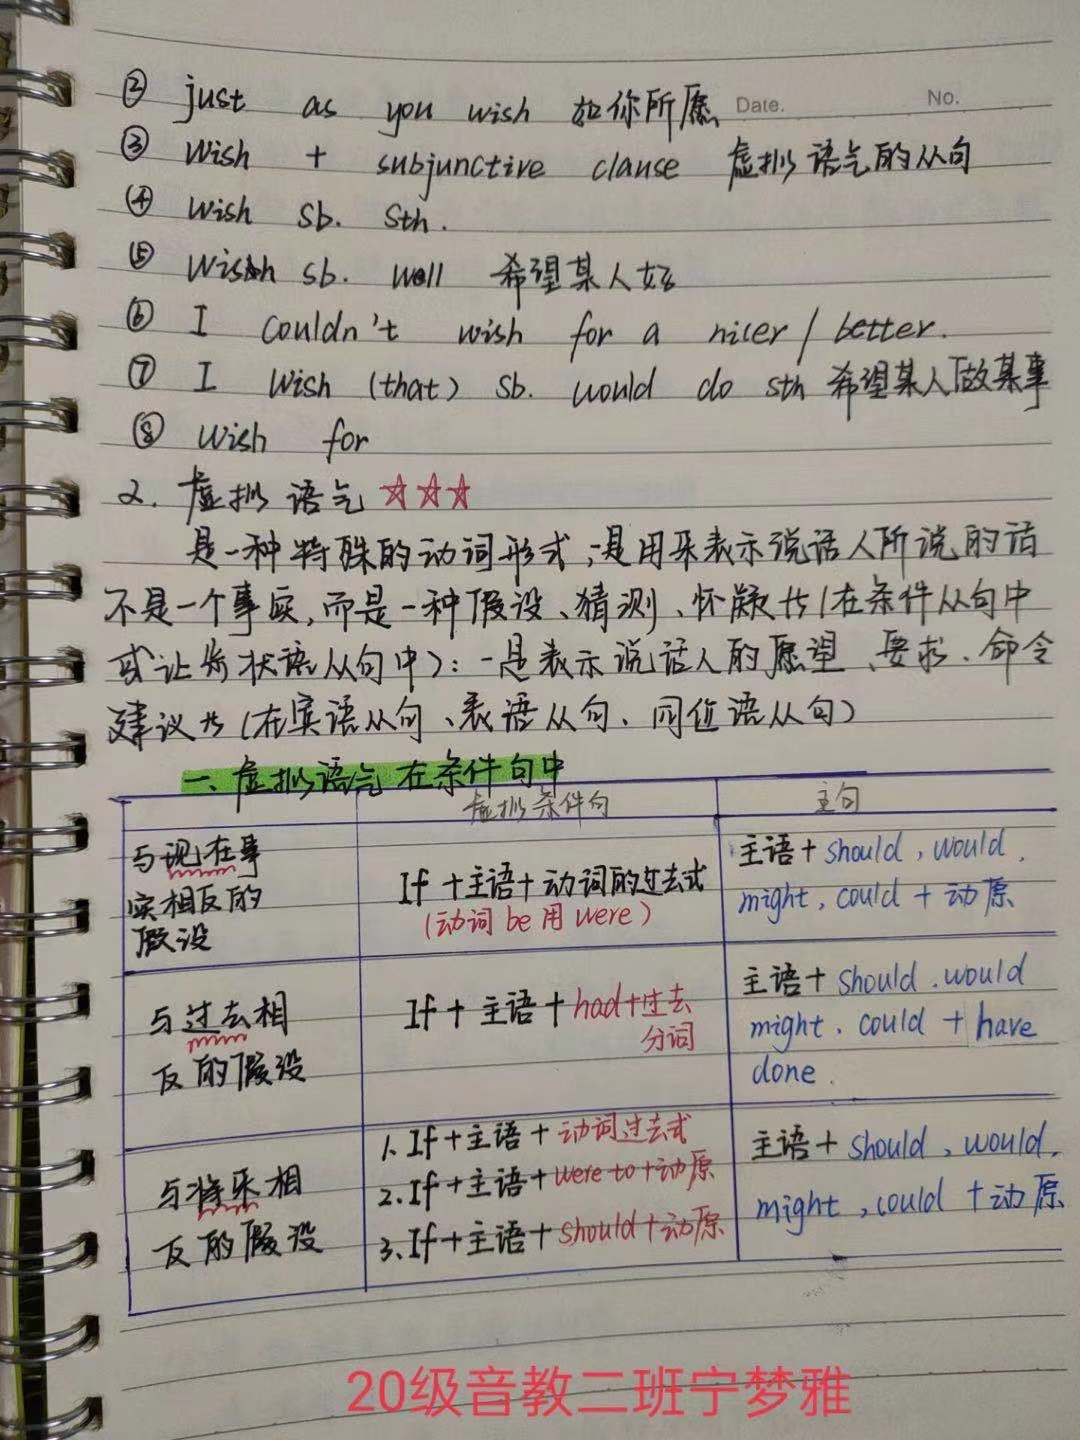 ② just as you wish 如你所愿 Date. No.
③ Wish + subjunctive clause 虚拟语气的从句
④ wish sb. sth.
⑤ wish sb. well 希望某人好
⑥ I couldn't wish for a nicer / better.
⑦ I wish (that) sb. would do sth 希望某人做某事
⑧ wish for
2. 虚拟语气 ☆☆☆
是一种特殊的动词形式,一是用来表示说话人所说的话
不是一个事实,而是一种假设、猜测、怀疑等(在条件从句中
或让步状语从句中):一是表示说话人的愿望、要求、命令
建议等(在宾语从句、表语从句、同位语从句)
一、虚拟语气在条件句中
虚拟条件句
主句
与现在事
实相反的
假设
If+主语+动词的过去式
(动词 be 用 were)
主语+ should, would,
might, could + 动原
与过去相
反的假设
If + 主语 + had+过去
分词
主语+ should. would
might. could + have
done.
与将来相
反的假设
1. If+主语+动词过去式
2. If+主语+were to+动原
3. If+主语+should+动原
主语+ should, would,
might, could +动原
20级音教二班宁梦雅